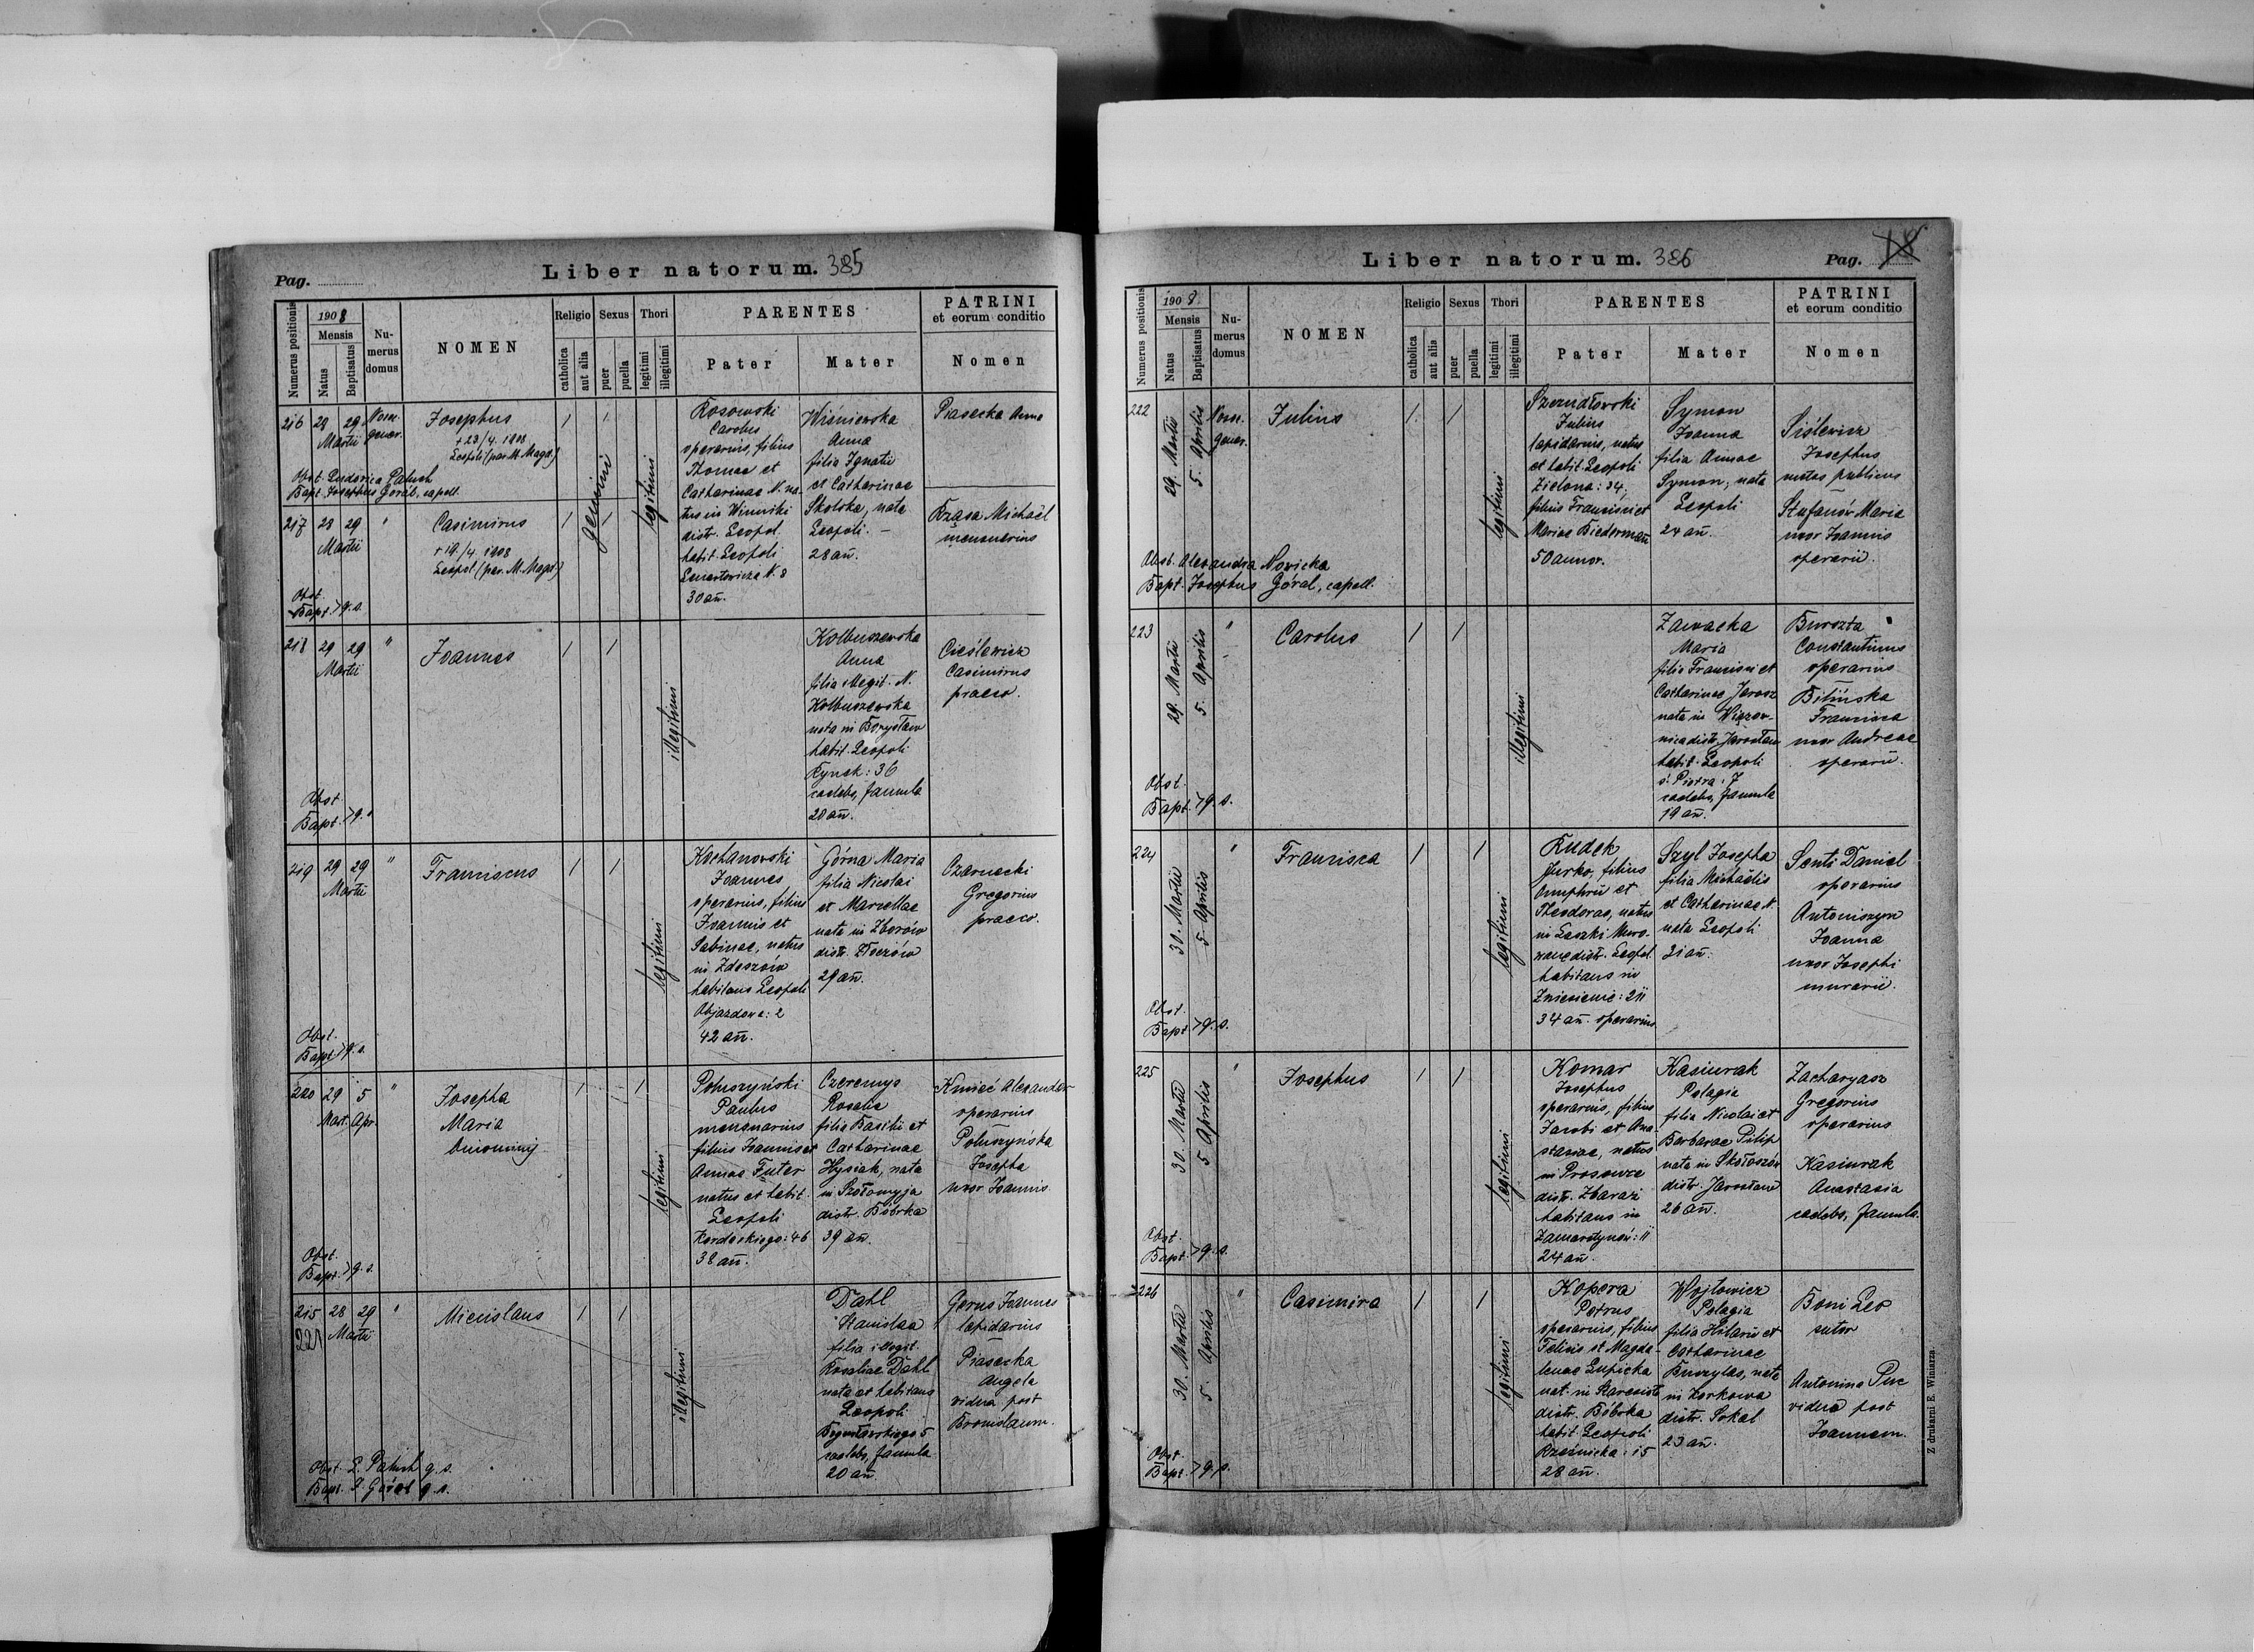 Pag.
Liber natorum. 385
Numerus positionis
1908
Mensis
Natus
Baptisatus
Nu-
merus
domus
NOMEN
Religio
catholica
aut alia
Sexus
puer
puella
Thori
legitimi
illegitimi
PARENTES
Pater
Mater
PATRINI
et eorum conditio
Nomen
216
28 29
Martii
Nosoc.
gener.
Josephus
+ 23/4. 1908
Leopoli (par. M. Magd.)
Obst. Ludovica Paluch
Bapt. Josephus Góral, capell.
gemini
legitimi
Kosowski
Carolus
operarius, filius
Thomae et
Catharinae N. na-
tus in Winniki
distr. Leopol.
habit. Leopoli
Lenartowicza N. 8
30 an.
Wiśniewska
Anna
filia Ignatii
et Catharinae
Skolska, nata
Leopoli. —
28 an.
Piasecka Anna
217
28 29
Martii
"
Casimirus
+ 19/4. 1908
Leopol (par. M. Magd.)
Obst.
Bapt. > q. s.
Rząsa Michaël
mensuarius
218
29 29
Martii
"
Joannes
Obst.
Bapt. > q. s.
illegitimi
Kolbuszewska
Anna
filia illegit. N.
Kolbuszewska
nata in Borysław
habit. Leopoli
Rynek: 36
caelebs, famula
20 an.
Cieślewicz
Casimirus
praeco.
219
29 29
Martii
"
Franciscus
Obst.
Bapt. > q. s.
legitimi
Kochanowski
Joannes
operarius, filius
Joannis et
Sabinae, natus
in Zdeszów
habitans Leopoli
Objazdowa: 2
42 an.
Górna Maria
filia Nicolai
et Marcellae
nata in Zborów
distr. Złoczów
29 an.
Czarnecki
Gregorius
praeco.
220
29 5
Mart. Apr.
"
Josepha
Maria
binominis
Obst.
Bapt. > q. s.
legitimi
Połuszyński
Paulus
mensuarius
filius Joannis et
Annae Futer
natus et habit.
Leopoli
Kordeckiego: 46
38 an.
Czeremys
Rosalia
filia Basilii et
Catharinae
Hysiak, nata
in Szołomyja
distr. Bóbrka
39 an.
Kmieć Alexander
operarius
Połuszyńska
Josepha
uxor Joannis
215
221
28 29
Martii
"
Miecislaus
Obst. L. Paluch q. s.
Bapt. J. Góral q. s.
illegitimi
Dahl
Stanislaa
filia illegit.
Rosaliae Dahl
nata et habitans
Leopoli
Bogusławskiego 5
caelebs, famula
20 an.
Gerus Joannes
lapidarius
Piasecka
Angela
vidua post
Bronislaum.
Liber natorum. 386
Pag.
Numerus positionis
1908.
Mensis
Natus
Baptisatus
Nu-
merus
domus
NOMEN
Religio
catholica
aut alia
Sexus
puer
puella
Thori
legitimi
illegitimi
PARENTES
Pater
Mater
PATRINI
et eorum conditio
Nomen
222
29. Martii
5. Aprilis
Nosoc.
gener.
Julius
Obst. Alexandra Nowicka
Bapt. Josephus Góral, capell.
legitimi
Szezudłowski
Julius
lapidarius, natus
et habit. Leopoli
Zielona: 34,
filius Francisci et
Mariae Biederman
50 annor.
Symon
Joanna
filia Annae
Symon, nata
Leopoli
24 an.
Siślewicz
Josephus
custos publicus
Stefanów Maria
uxor Joannis
operarii.
223
29. Martii
5. Aprilis
"
Carolus
Obst.
Bapt. > q. s.
illegitimi
Zawacka
Maria
filia Francisci et
Catharinae Jarosz
nata in Wiązow-
nica distr. Jarosław
habit. Leopoli
ś. Piotra: 7
caelebs, famula
19 an.
Burszta
Constantinus
operarius
Bilińska
Francisca
uxor Andreae
operarii.
224
30. Martii
5. Aprilis
"
Francisca
Obst.
Bapt. > q. s.
legitimi
Rudek
Jurko, filius
Onuphrii et
Theodorae, natus
in Laszki Muro-
wane distr. Leopol.
habitans in
Zniesienie: 211
34 an. operarius
Szyl Josepha
filia Michaëlis
et Catharinae N.
nata Leopoli
31 an.
Senti Daniel
operarius
Antoniszyn
Joanna
uxor Josephi
murarii.
225
30. Martii
5. Aprilis
"
Josephus
Obst.
Bapt. > q. s.
legitimi
Komar
Josephus
operarius, filius
Jacobi et Ana-
stasiae, natus
in Prosowce
distr. Zbaraż
habitans in
Zamarstynów: 11
24 an.
Kasiurak
Pelagia
filia Nicolai et
Barbarae Pilip
nata in Skołoszów
distr. Jarosław
26 an.
Zacharyasz
Gregorius
operarius
Kasiurak
Anastasia
caelebs, famula.
226
30. Martii
5. Aprilis
"
Casimira
Obst.
Bapt. > q. s.
legitimi
Kopera
Petrus
operarius, filius
Felicis et Magda-
lenae Lupicka
nat. in Staresioło
distr. Bóbrka
habit. Leopoli
Rzeźnicka: 15
28 an.
Wojtowicz
Pelagia
filia Hilarii et
Catharinae
Buszylas, nata
in Korkowa
distr. Sokal
23 an.
Boni Leo
sutor
Antonina Puc
vidua post
Joannem.
Z drukarni E. Winiarza.